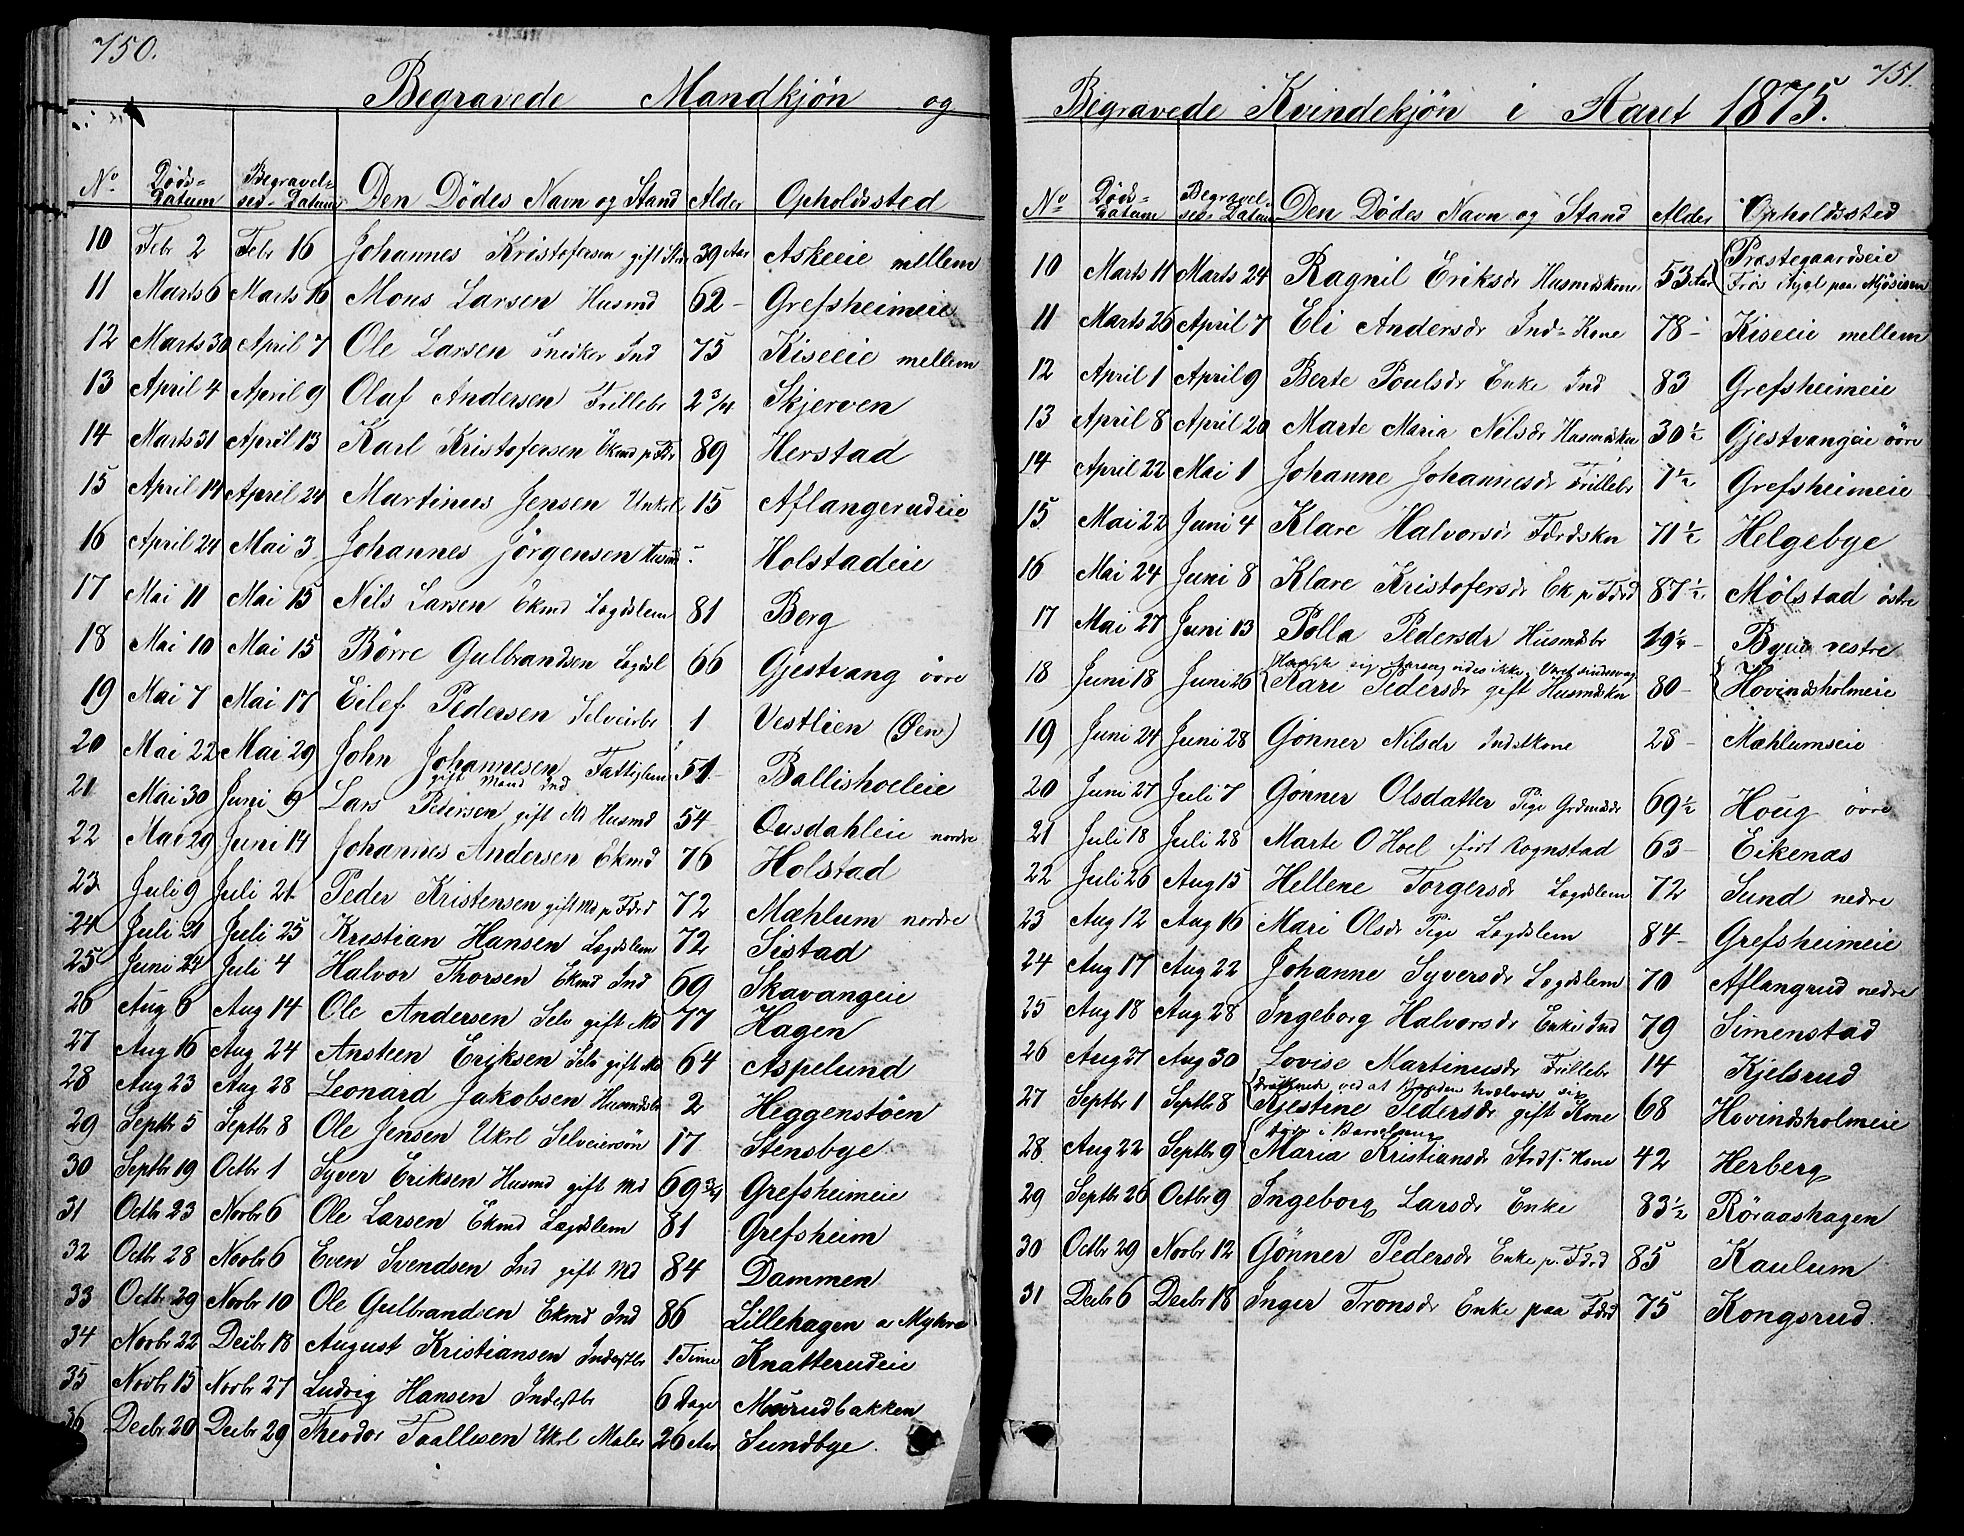 750.
Begravede Mandkjön og
No Döds-Datum Begravelses-Datum Den Dödes Navn og Stand Alder Opholdssted
10 Febr 2 Febr 16 Johannes Kristofersen gift 39 Aar Askeeie mellem
11 Marts 6 Marts 16 Mons Larsen Husmd 62 - Grefsheimeie
12 Marts 30 April 7 Ole Larsen Snedker Ind 75 Kiseeie mellem
13 April 4 April 9 Olaf Andersen Frillebr 2 3/4 Skjerven
14 Marts 31 April 13 Karl Kristofersen Ekmd p. Fdr 89 Herstad
15 April 14 April 24 Martinus Jensen Unkrl 15 Aflangerudeie
16 April 24 Mai 3 Johannes Jörgensen - Holstadeie
17 Mai 11 Mai 15 Nils Larsen Ekmd Lægdslem 81 Berg
18 Mai 10 Mai 15 Börre Gulbrandsen Lægdsl 66 Gjestvang övre
19 Mai 7 Mai 17 Eilef Pedersen Selveierbr 1 Vestlien (Öen)
20 Mai 22 Mai 29 John Johannesen Fattiglem 51 - Ballishoeleie
gift Mand Ind
21 Mai 30 Juni 9 Lars Pedersen gift Md Husmd 54 Ousdahleie nordre
22 Mai 29 Juni 14 Johannes Andersen Ekmd 76 Holstad
23 Juli 9 Juli 21 Peder Kristensen gift Md p Fdrd 72 Mæhlum nordre
24 Juli 21 Juli 25 Kristian Hansen Lægdslem 72 Sistad
25 Juni 24 Juli 4 Halvor Thorsen Ekmd Ind 69 Skavangeie
26 Aug 6 Aug 14 Ole Andersen Selv gift Md 77 Hagen
27 Aug 16 Aug 24 Ansteen Eriksen Selv gift Md 64 Aspelund
28 Aug 23 Aug 28 Leonard Jakobsen Husmdsbr 2 Heggenstöen
29 Septbr 5 Septbr 8 Ole Jensen Ukrl Selveiersön 17 Stensbye
30 Septbr 19 Octbr 1 Syver Eriksen Husmd gift Md 69 3/4 Grefsheimeie
31 Octbr 23 Novbr 6 Ole Larsen Ekmd Lægdslem 81 Grefsheim
32 Octbr 28 Novbr 6 Even Svendsen Ind gift Md 84 Dammen
33 Octbr 29 Novbr 10 Ole Gulbrandsen Ekmd Ind 86 Lillehagen a Myhre
34 Novbr 22 Decbr 18 August Kristiansen Inderstbr 1 Time Knatterudeie
35 Novbr 15 Novbr 27 Ludvig Hansen Inderstbr 6 Dage Murudbakken
36 Decbr 20 Decbr 29 Theodor Taallesen Ukrl Maler 26 Aar Sundbye.
751.
Begravede Kvindekjön i Aaret 1875.
No Döds-Datum Begravelses-Datum Den Dödes Navn og Stand Alder Opholdssted
10 Marts 11 Marts 24 Ragnil Eriksdr Husmdskone 53 Aar Præstegaardseie
Frös ihjel paa Mjösisen
11 Marts 26 April 7 Eli Andersdr Ind-Kone 78 - Kiseeie mellem
12 April 1 April 9 Berte Poulsdr Enke Ind 83 Grefsheimeie
13 April 8 April 20 Marte Maria Nilsdr Husmdskn 30 1/2 Gjestvangeie övre
14 April 22 Mai 1 Johanne Johannesdr Frillebr 7 1/2 Grefsheimeie
15 Mai 22 Juni 4 Klare Halvorsdr Fdrdskn 71 1/2 Helgebye
16 Mai 24 Juni 8 Klare Kristofersdr Ek p. Fdrd 87 1/2 Mølstad östre
17 Mai 27 Juni 13 Polla Pedersdr Husmdsbr Byeie vestre
Hængte sig Aarsag vides ikke.
18 Juni 18 Juni 26 Kari Pedersdr gift Husmdskn 80 - Hovindsholmeie
19 Juni 24 Juni 28 Gönner Nilsdr Indstkone 28 - Mæhlumseie
20 Juni 27 Juli 7 Gönner Olsdatter Pige Grdmdsdr 69 1/2 Houg övre
21 Juli 18 Juli 28 Marte O Hoel födt Rognstad 63 - Eikenæs
22 Juli 26 Aug 15 Hellene Torgersdr Lægdslem 72 Sund nedre
23 Aug 12 Aug 16 Mari Olsdr Pige Lægdslem 84 - Grefsheimeie
24 Aug 17 Aug 22 Johanne Syversdr Lægdslem 70 Aflangrud nedre
25 Aug 18 Aug 28 Ingeborg Halvorsdr Enke Ind 79 Simenstad
26 Aug 27 Aug 30 Lovise Martinusdr Frillebr 14 Kjelsrud
druknede ved at Baaden hvelvede sig
27 Septbr 1 Septbr 8 Kjestine Pedersdr gift Kone 68 Hovindsholmeie
Döde i Barselseng
28 Aug 22 Septbr 9 Maria Kristiansdr Kone 42 Herberg
29 Septbr 26 Octbr 9 Ingeborg Larsdr Enke 83 1/2 Röraashagen
30 Octbr 29 Novbr 12 Gönner Pedersdr Enke p. Fdrd 85 Kaulum
31 Decbr 6 Decbr 18 Inger Tronsdr Enke paa Fdrd 75 Kongsrud.